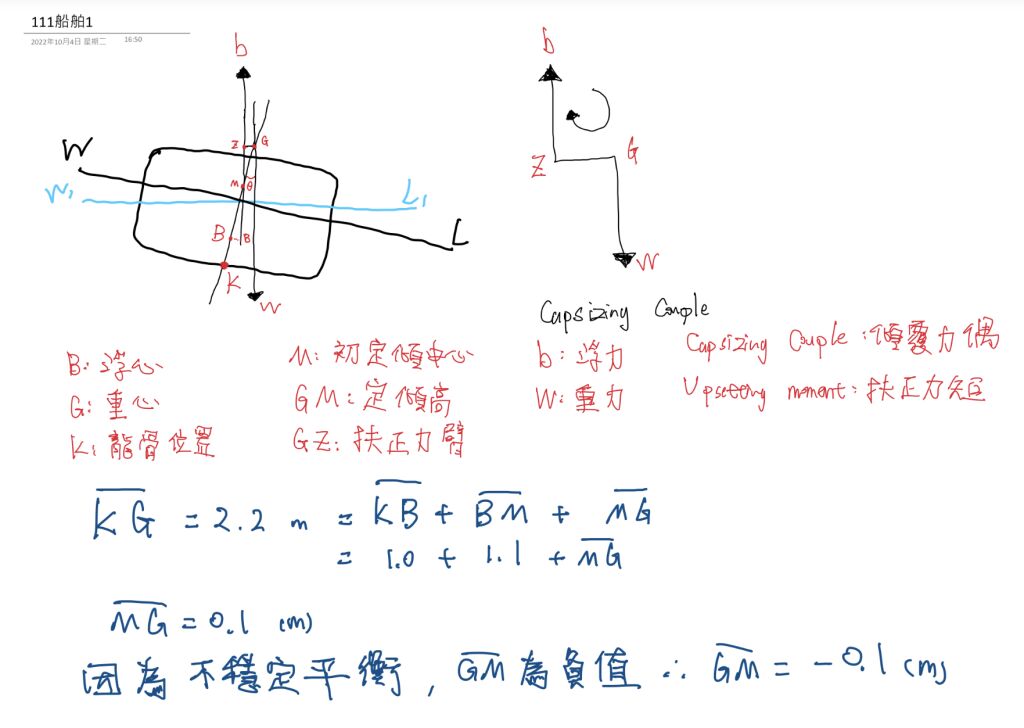 111船舶1
2022年10月4日 星期二 16:50
b
Z G
W
M θ
W₁ L₁
B B
L
K
W
b
Z G
W
Capsizing Couple
b：浮力
W：重力
Capsizing Couple：傾覆力偶
Upsetting moment：扶正力矩
B：浮心
G：重心
K：龍骨位置
M：初定傾中心
GM：定傾高
GZ：扶正力臂
K̅G̅ = 2.2 m = K̅B̅ + B̅M̅ + M̅G̅
= 1.0 + 1.1 + M̅G̅
M̅G̅ = 0.1 (m)
因為不穩定平衡，G̅M̅為負值 ∴ G̅M̅ = -0.1 (m)